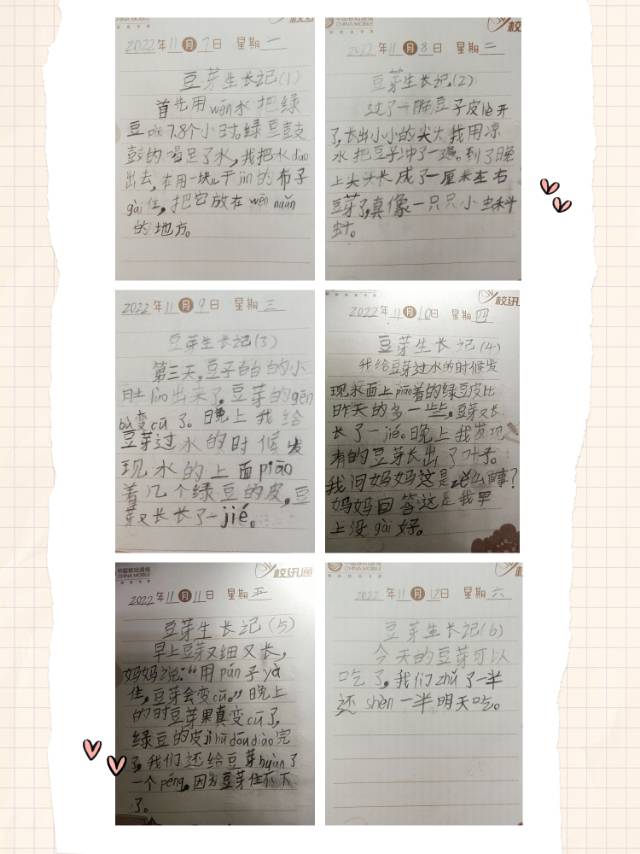 校讯
2022年11月7日 星期一
豆芽生长记(1)
首先用wēn水把绿
豆 7.8个小时,绿豆鼓
鼓的喝足了水,我把水dao
出去,在用一块干jìn的布子
gài住,把它放在wēn nuǎn
的地方。
中国移动通信
CHINA MOBILE
校
2022年11月8日 星期二
豆芽生长记(2)
过了一晚豆子皮 开
了,长出小小的尖尖,我用凉
水把豆子冲了一遍。到了晚
上尖尖长成了一厘米左右
豆芽了,真像一只只小蝌
蚪。
2022年11月9日 星期三
豆芽生长记(3)
第三天,豆子白白的小
肚 出来了,豆芽的gēn
bù变cū了。晚上我给
豆芽过水的时候发
现水的上面piāo
着几个绿豆的皮,豆
芽又长长了一jié。
校讯
2022年11月10日 星期四
豆芽生长记(4)
我给豆芽过水的时候发
现水面上piāo着的绿豆皮比
昨天的多一些,豆芽又长
长了一jié。晚上我发现
有的豆芽长出了叶子。
我问妈妈这是怎么回事?
妈妈回答这是我早
上没gài好。
中国移动通信
CHINA MOBILE
校讯通
2022年11月11日 星期五
豆芽生长记(5)
早上豆芽又细又长,
妈妈说:“用pán子yā
住,豆芽会变cū。”晚上
的时豆芽果真变cū了,
绿豆的皮jī hū dōu diào完
了,我们还给豆芽huàn了
一个pén,因为豆芽住不下
了。
中国移动通信
CHINA MOBILE
校
2022年11月12日 星期六
豆芽生长记(6)
今天的豆芽可以
吃了,我们zhǔ了一半
还shèn一半明天吃。